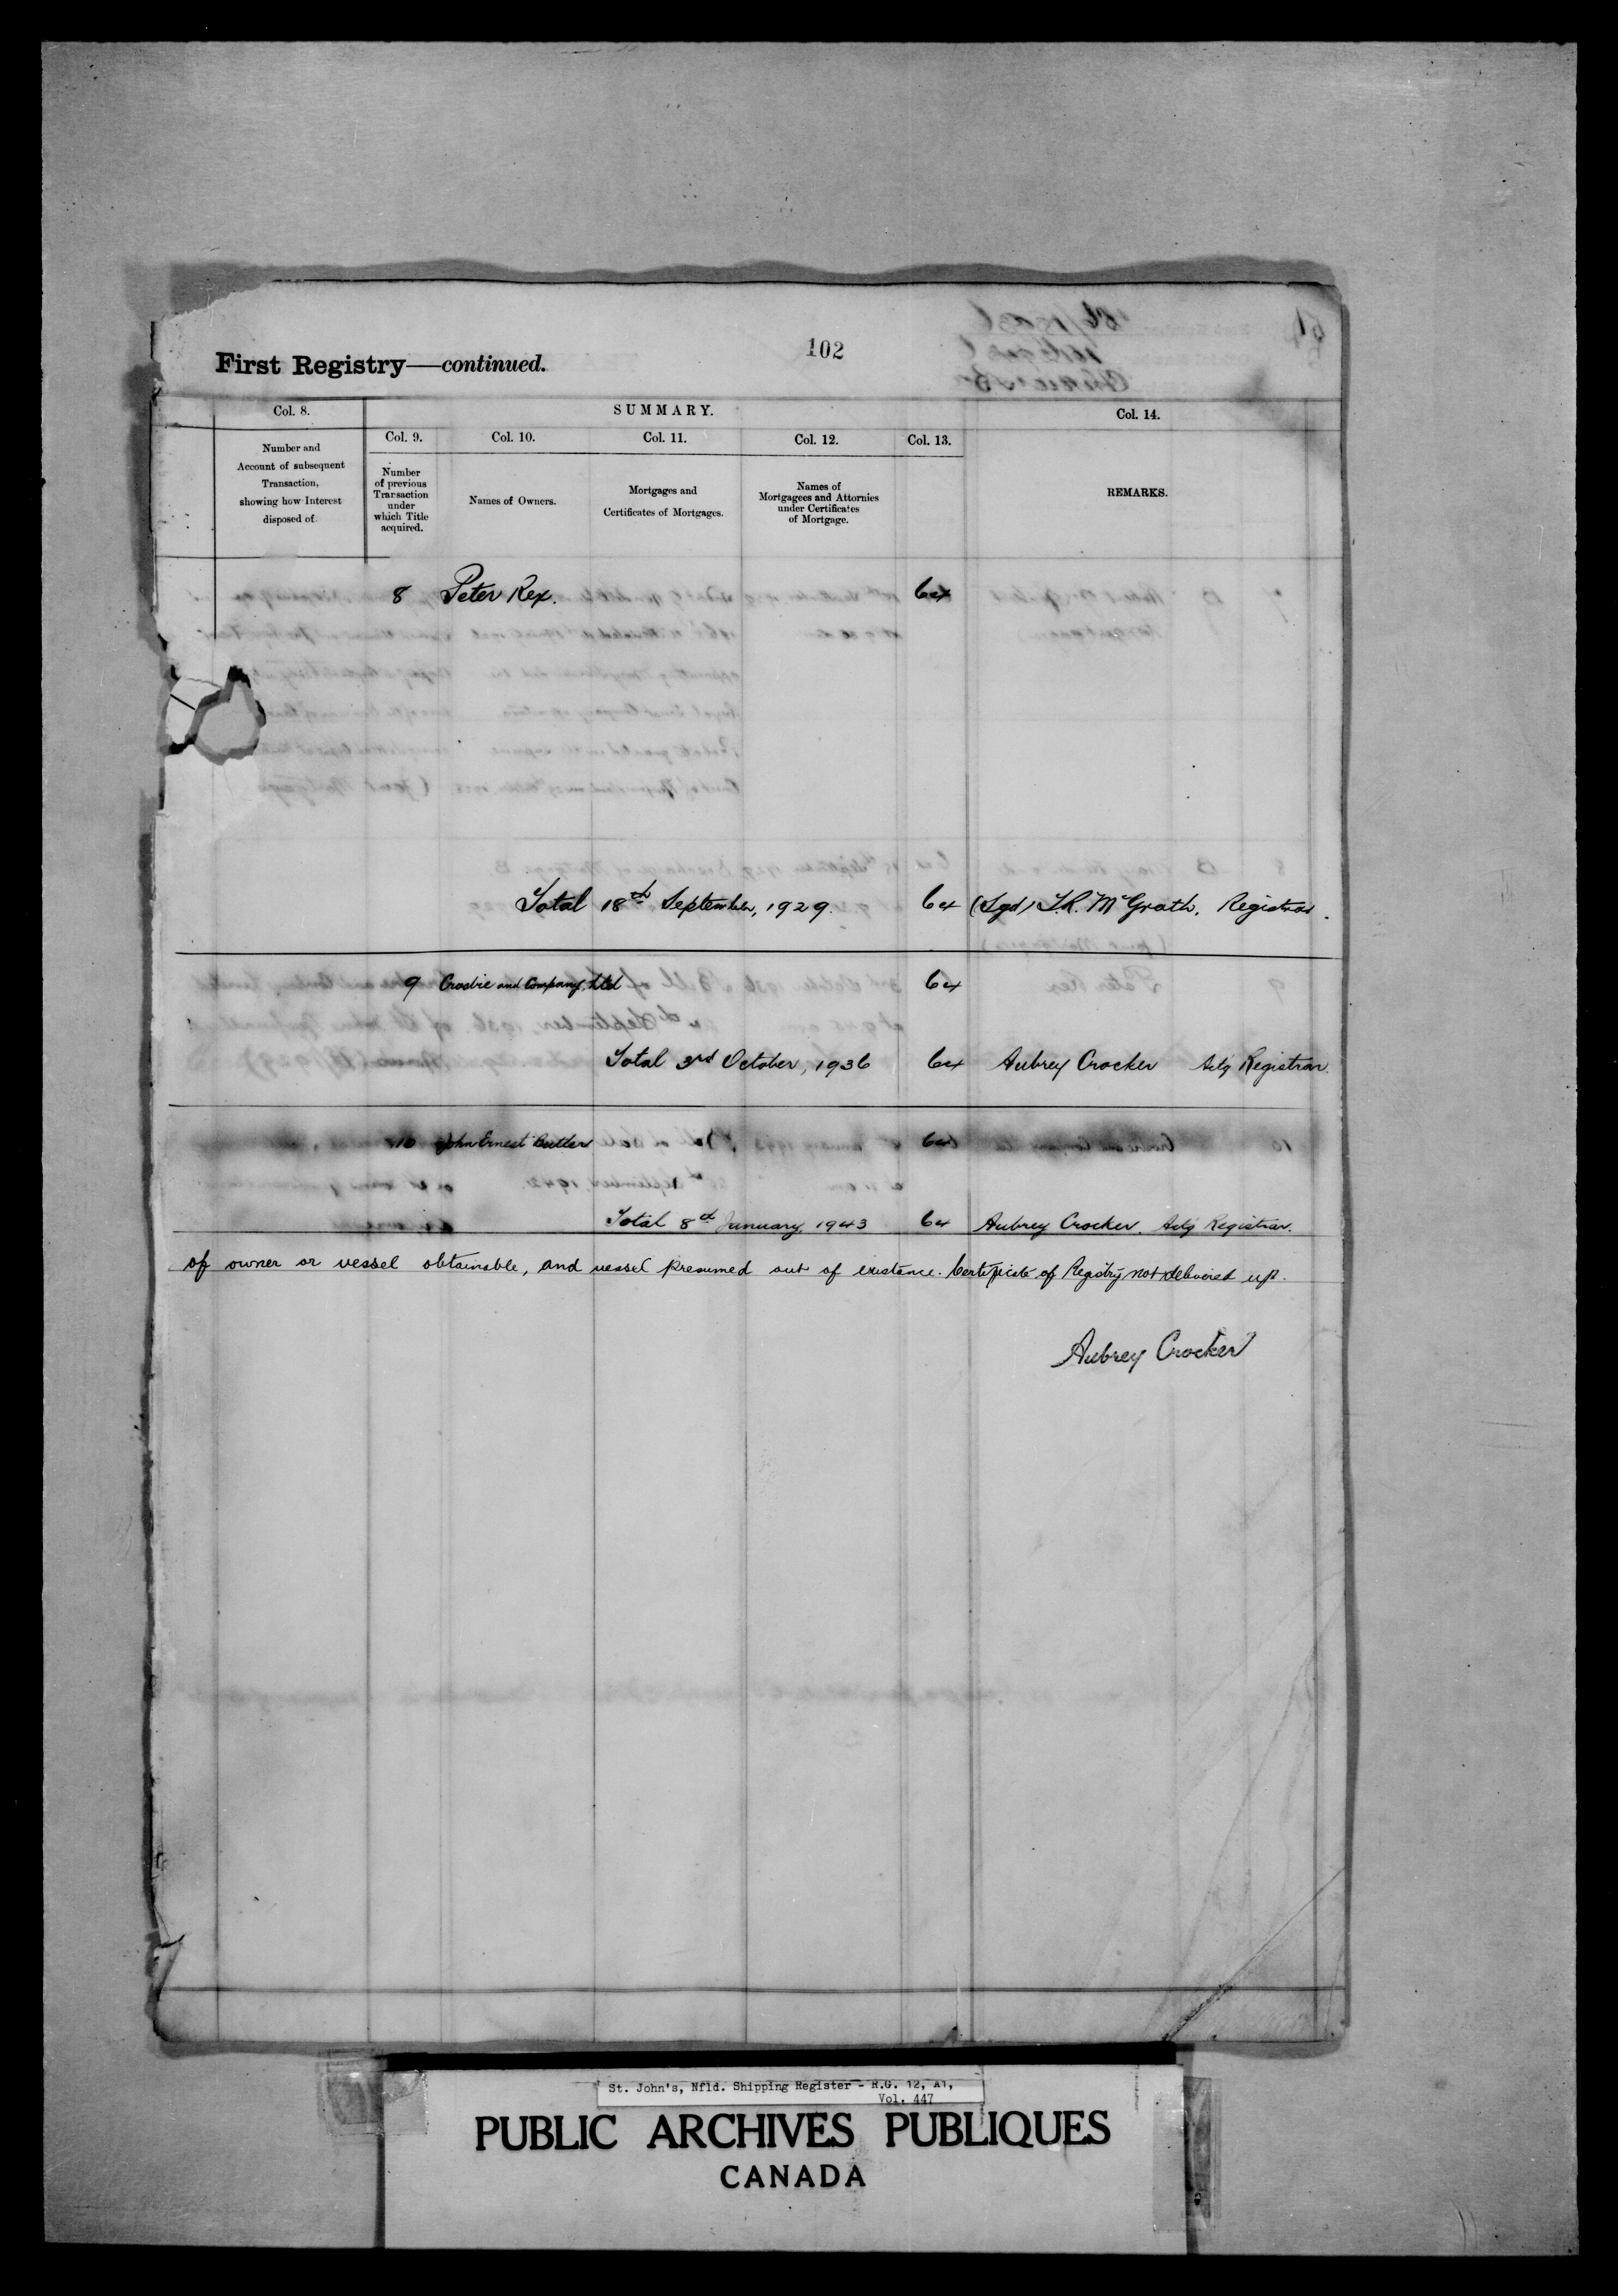 102
First Registry—continued.
Col. 8.
SUMMARY.
Col. 14.
Col. 9.
Col. 10.
Col. 11.
Col. 12.
Col. 13.
Number and
Account of subsequent
Transaction,
showing how Interest
disposed of.
Number
of previous
Transaction
under
which Title
acquired.
Names of Owners.
Mortgages and
Certificates of Mortgages.
Names of
Mortgagees and Attornies
under Certificates
of Mortgage.
REMARKS.
8 Peter Rex. 64
Total 18th September, 1929. 64 (Sgd) T.R. McGrath, Registrar.
9 Crosbie and Company, Ltd 64
Total 3rd October, 1936 64 Aubrey Crocker Actg Registrar.
10 John Ernest Butler 64
Total 8th January, 1943 64 Aubrey Crocker. Actg Registrar.
of owner or vessel obtainable, and vessel presumed out of existence. Certificate of Registry not delivered up.
Aubrey Crocker
St. John's, Nfld. Shipping Register - R.G. 12, A1,
Vol. 447
PUBLIC ARCHIVES PUBLIQUES
CANADA